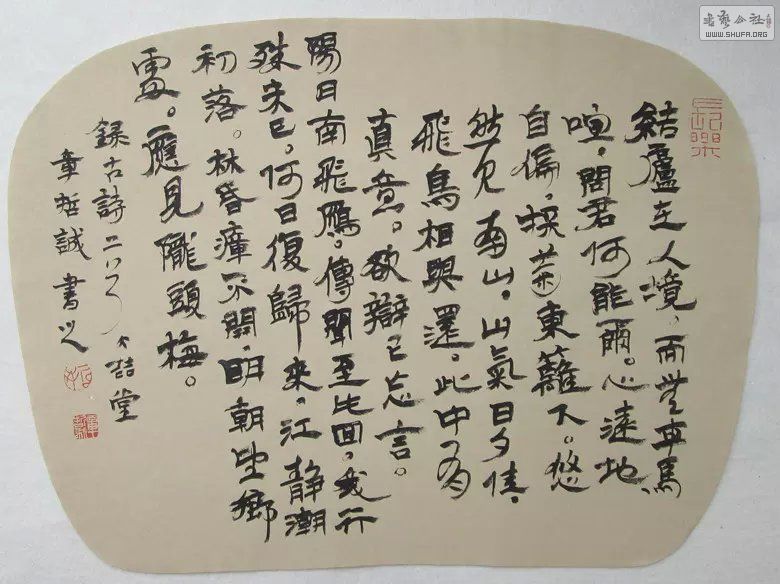 書藝公社
WWW.SHUFA.ORG
長樂
結廬在人境。而無車馬
喧。問君何能爾。心遠地
自偏。採菊東籬下。悠
然見南山。山氣日夕佳。
飛鳥相與還。此中有
真意。欲辯已忘言。
陽日南飛鴈。傳聞至此回。我行
殊未已。何日復歸來。江靜潮
初落。林昏瘴不開。明朝望鄉
處。應見隴頭梅。
錄古詩二首 喆堂
章哲誠書之